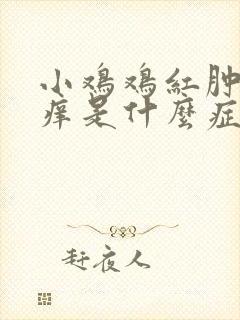 小鸡鸡紅肿
痒是什麼症
赶夜人